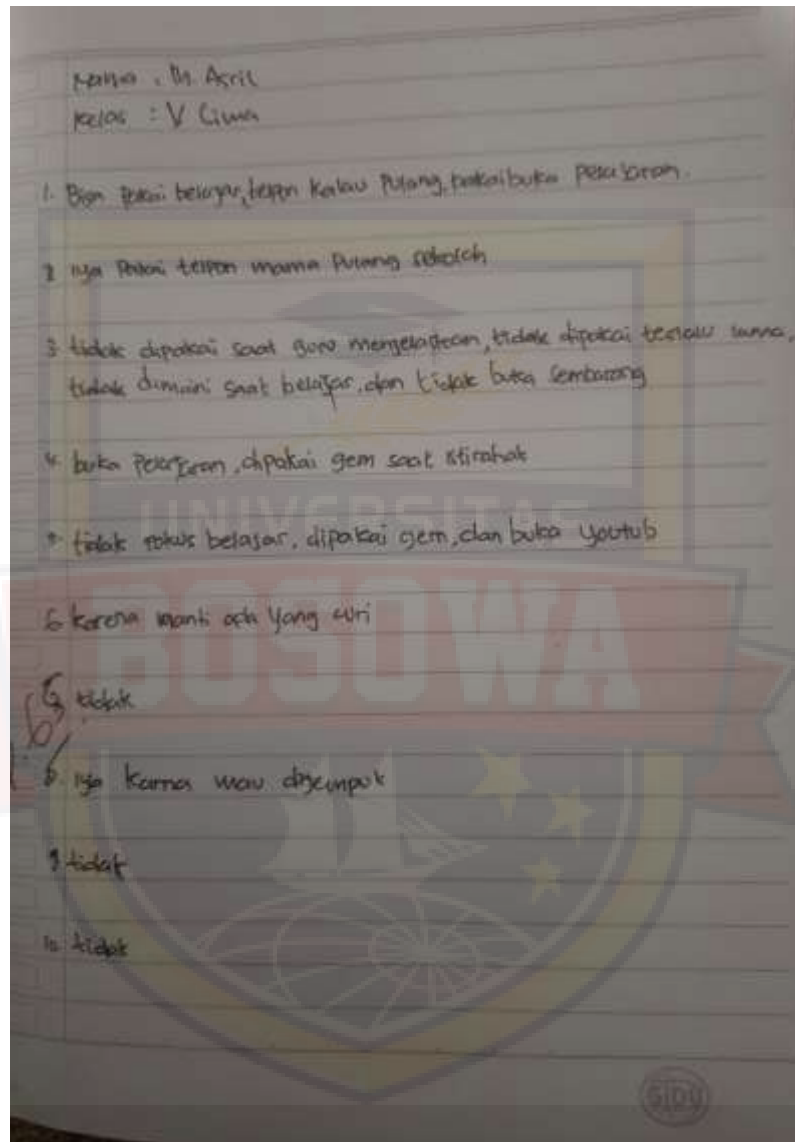 Nama : M Asril
Kelas : V Lima
1. Bisa pakai belajar, telpon kalau pulang, pakai buka pelajaran.
2 iya Pakai telpon mama Pulang sekolah
3 tidak dipakai saat guru menjelaskan, tidak dipakai terlalu lama,
tidak dimaini saat belajar, dan tidak buka sembarang
4. buka Pelajaran, dipakai gem saat istirahat
5. tidak fokus belajar, dipakai gem, dan buka youtub
6 karena nanti ada yang curi
7 tidak
8. iya karna mau dijemput
9 tidak
10. tidak
UNIVERSITAS
BOSOWA
SIDU